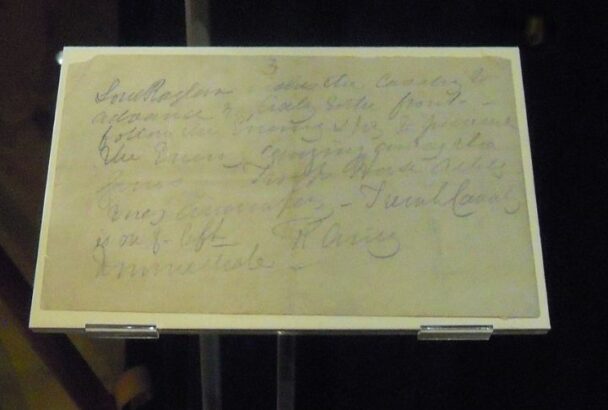 Lord Raglan wishes the Cavalry to
advance rapidly to the front –
follow the Enemy & try to prevent
the Enemy carrying away the
guns – Troop Horse Artily
may accompany – French Cavaly
is on yr left
R Airey
Immediate –